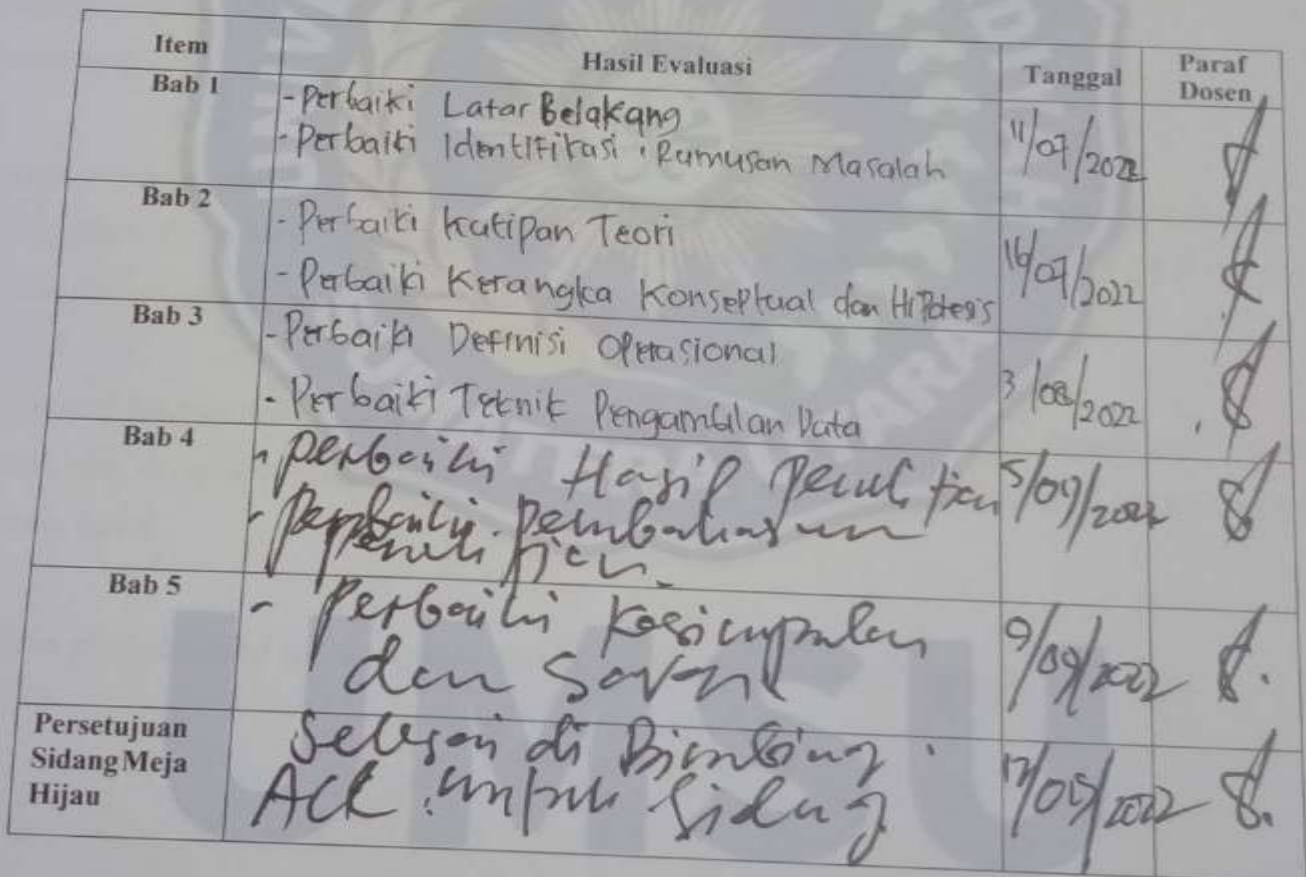 Item Hasil Evaluasi Tanggal Paraf Dosen
Bab 1
- Perbaiki Latar Belakang
- Perbaiki Identifikasi, Rumusan Masalah
11/07/2022
Bab 2
- Perbaiki Kutipan Teori
- Perbaiki Kerangka Konseptual dan Hipotesis
16/07/2022
Bab 3
- Perbaiki Definisi Operasional
- Perbaiki Teknik Pengambilan Data
3/08/2022
Bab 4
- Perbaiki Hasil Penelitian
- Perbaiki Pembahasan
Penelitian
5/09/2022
Bab 5
- Perbaiki Kesimpulan
dan Saran
9/09/2022
Persetujuan
Sidang Meja
Hijau
Selesai di Bimbing
Acc untuk Sidang
2022
UMSU